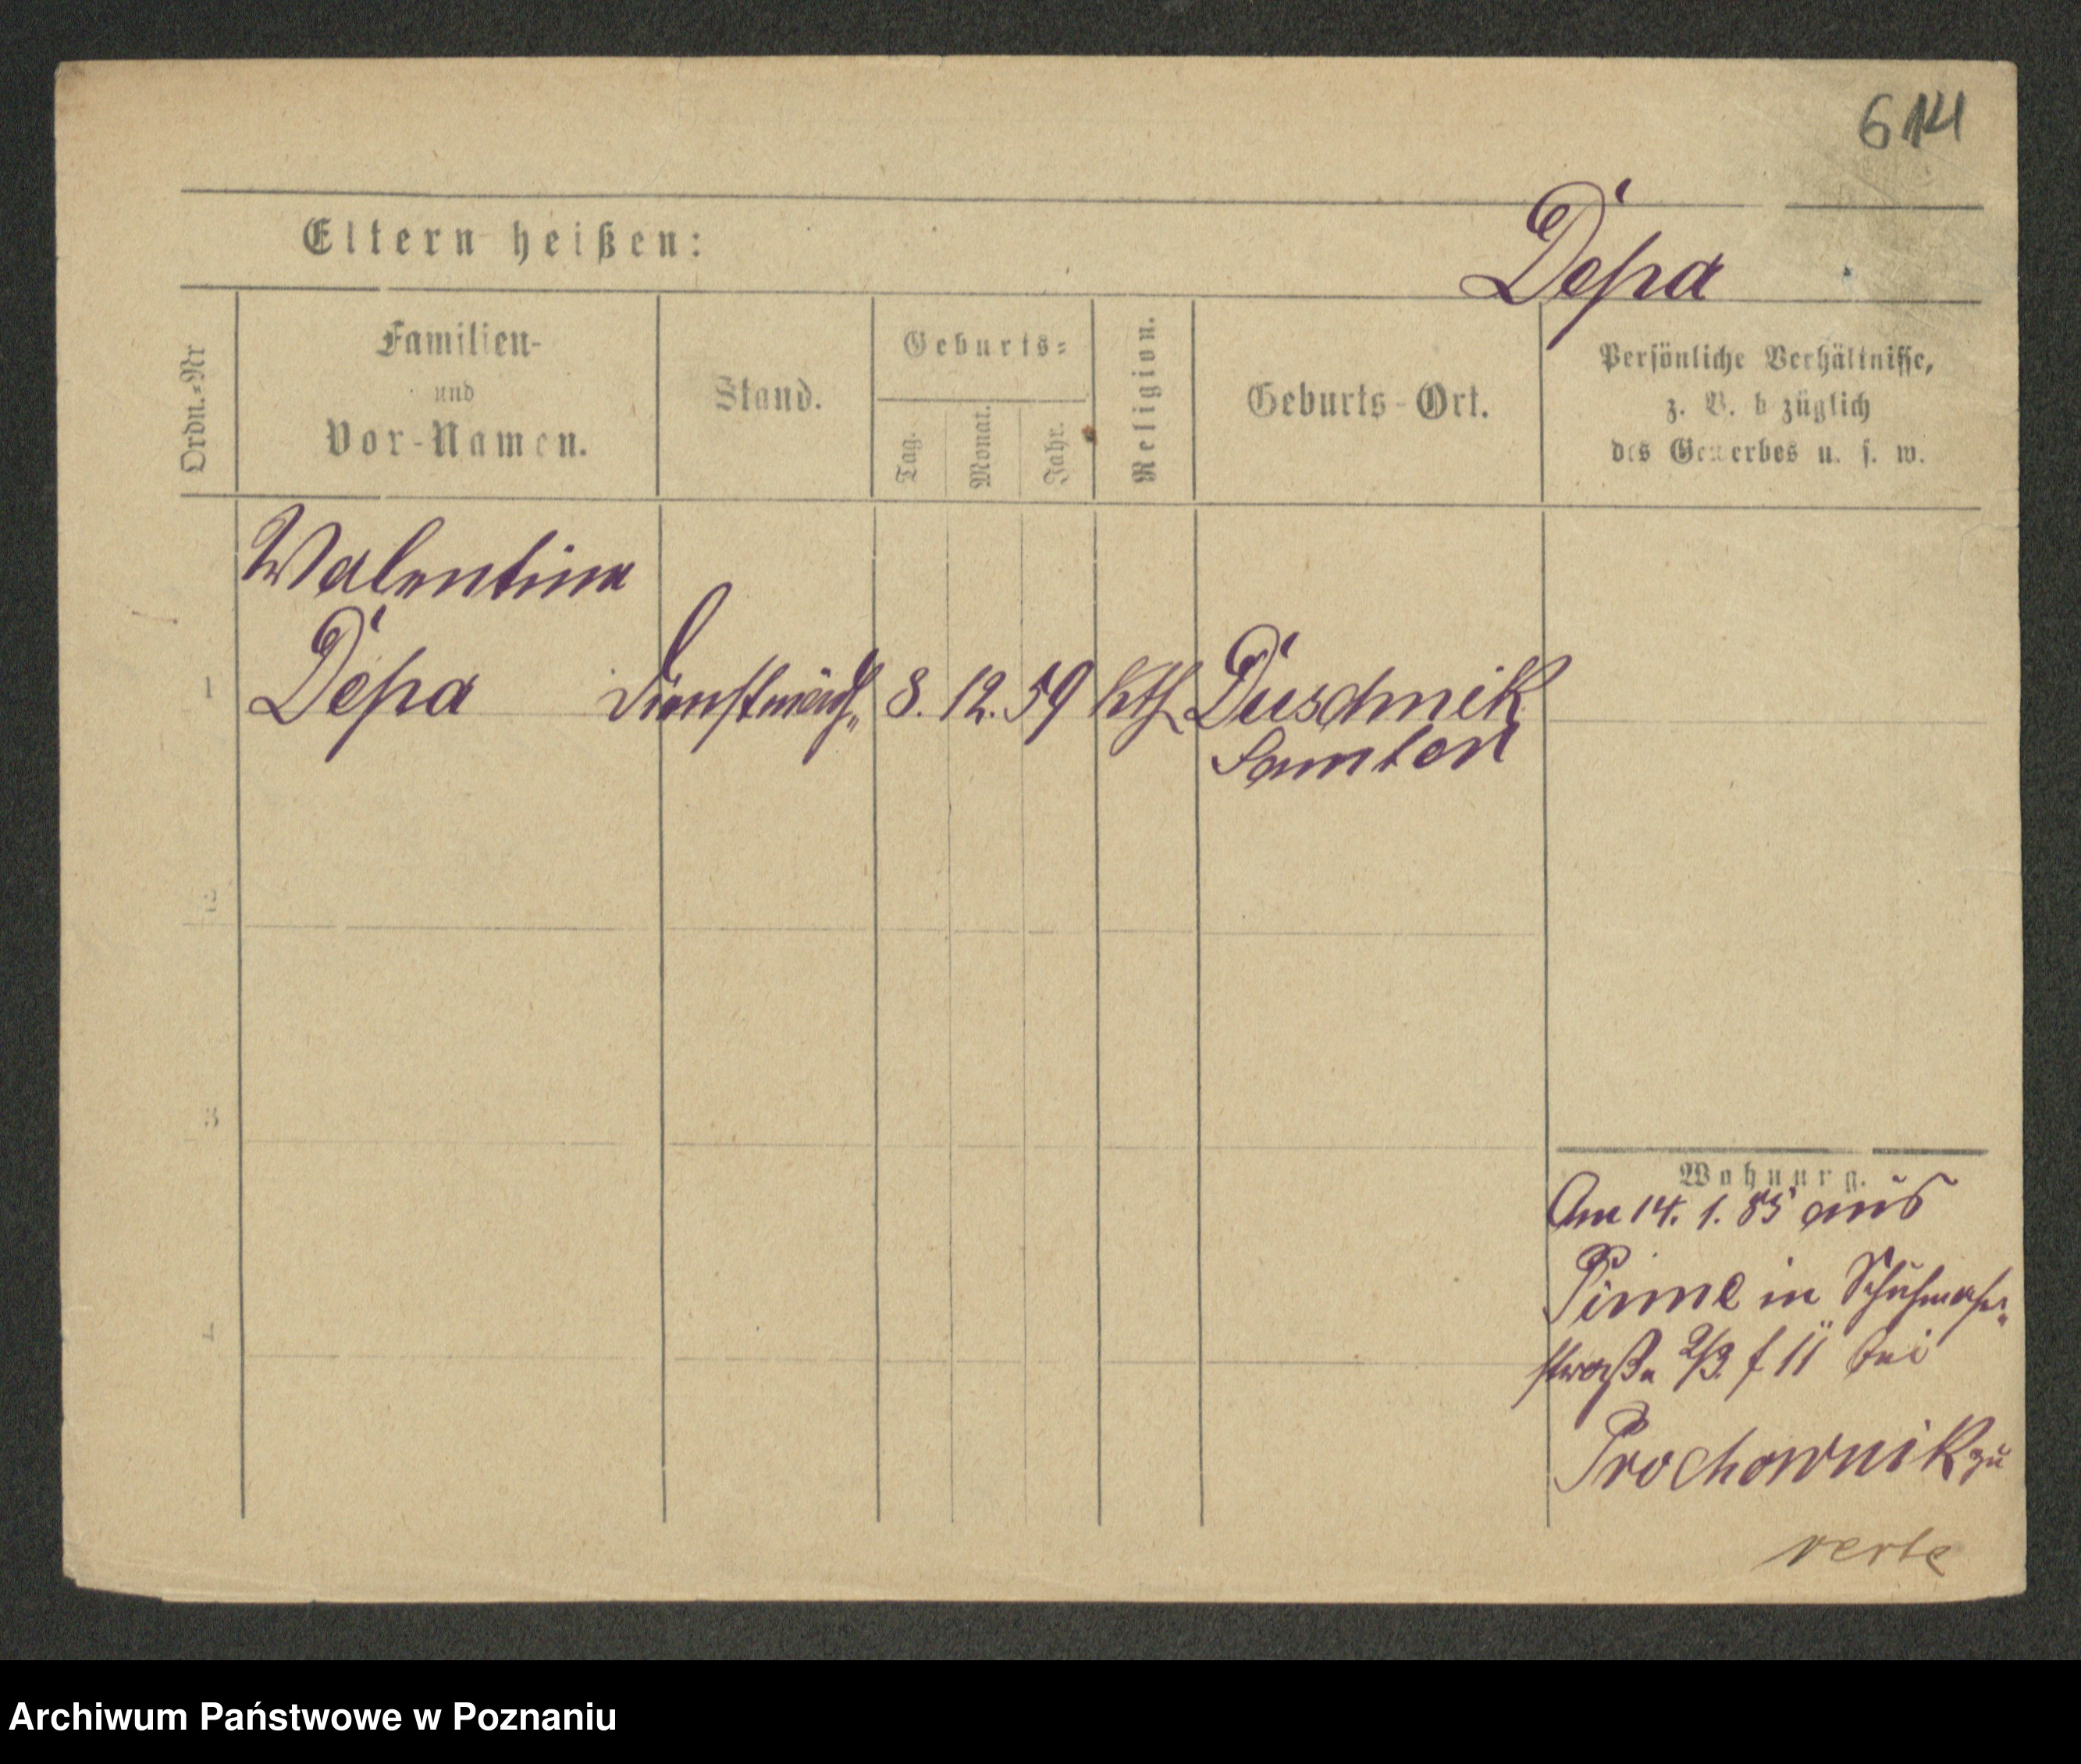 614
Depa
Eltern heißen:
Ordn.=Nr
Familien-
und
Vor-Namen.
Stand.
Geburts=
Tag.
Monat.
Jahr.
Religion.
Geburts-Ort.
Persönliche Verhältnisse,
z. B. bezüglich
des Gewerbes u. s. w.
Walentina
1 Depa Dienstmädch 8. 12. 59 kth Duschnik
Samter
2
3
4
Wohnung.
Am 14. 1. 85 aus
Pinne in Schuhmacher-
straße 2/3. f II bei
Prochownik zu
verte
Archiwum Państwowe w Poznaniu